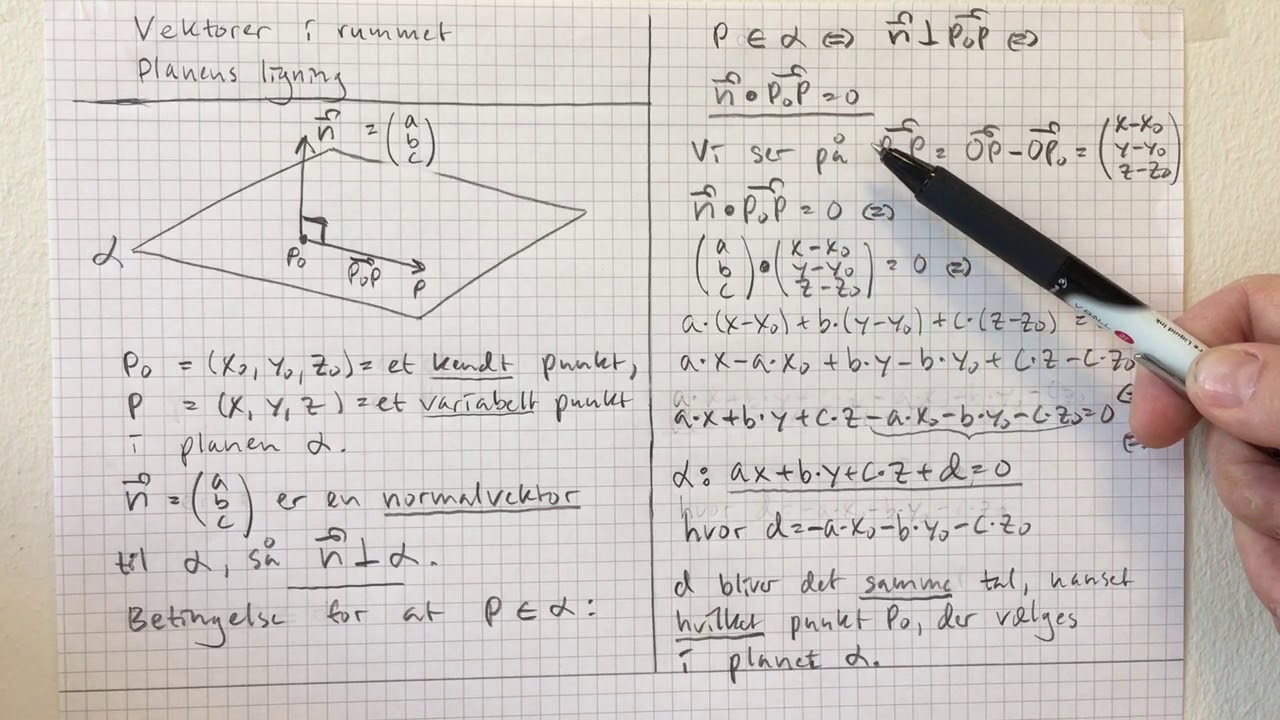 Vektorer i rummet
Planens ligning
n⃗ = (a b c)
α
P₀
P₀P⃗
P
P₀ = (x₀, y₀, z₀) = et kendt punkt,
P = (x, y, z) = et variabelt punkt
i planen α.
n⃗ = (a b c) er en normalvektor
til α, så n⃗ ⊥ α.
Betingelse for at P ∈ α:
P ∈ α ⇔ n⃗ ⊥ P₀P⃗ ⇔
n⃗ • P₀P⃗ = 0
Vi ser på P₀P⃗ = OP⃗ − OP₀⃗ = (x−x₀ y−y₀ z−z₀)
n⃗ • P₀P⃗ = 0 ⇔
(a b c) • (x−x₀ y−y₀ z−z₀) = 0 ⇔
a·(x−x₀) + b·(y−y₀) + c·(z−z₀) =
a·x − a·x₀ + b·y − b·y₀ + c·z − c·z₀
a·x + b·y + c·z − a·x₀ − b·y₀ − c·z₀ = 0
α: ax + b·y + c·z + d = 0
hvor d = −a·x₀ − b·y₀ − c·z₀
d bliver det samme tal, uanset
hvilket punkt P₀, der vælges
i planet α.